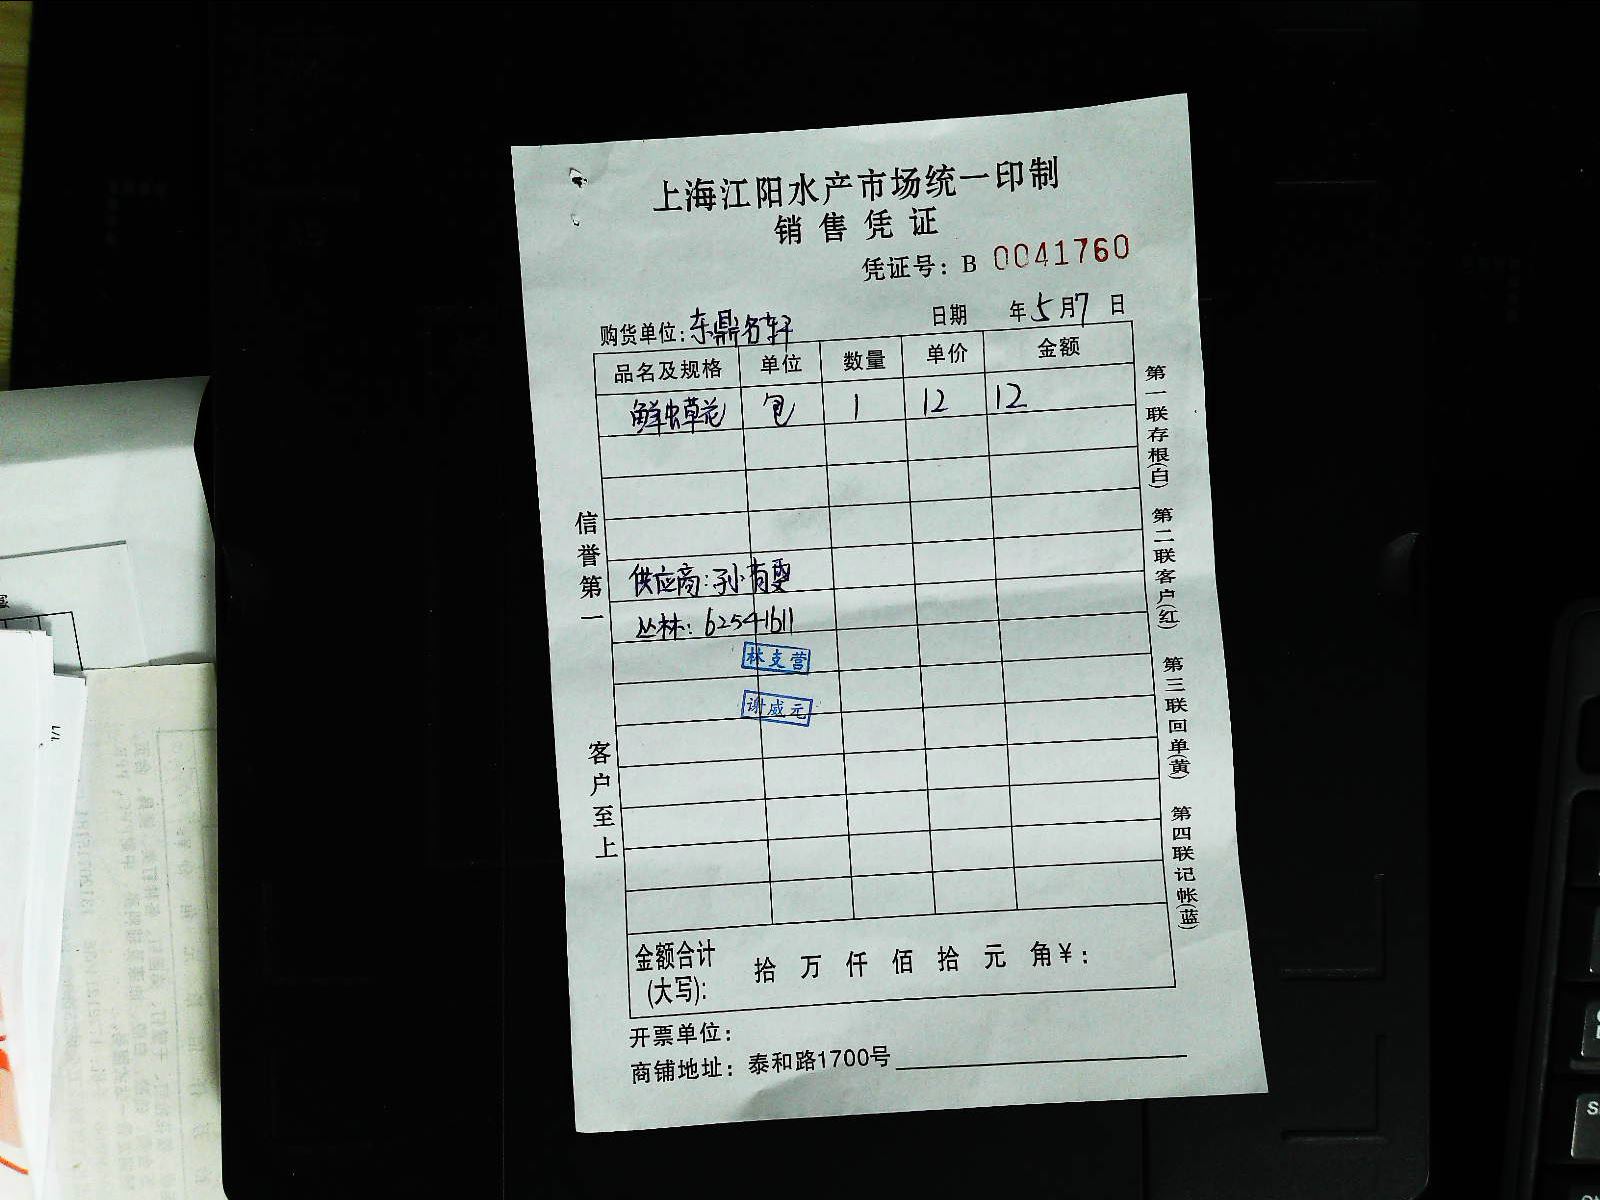 上海江阳水产市场统一印制
销售凭证
凭证号：B 0041760
购货单位：东鼎名轩 日期 年5月7日
品名及规格 单位 数量 单价 金额
鲜虫草花 包 1 12 12
供应商：孙有雯
丛林：62541611
林支营
谢威元
金额合计(大写)： 拾 万 仟 佰 拾 元 角￥：
开票单位：
商铺地址：泰和路1700号
信誉第一
客户至上
第一联存根(白) 第二联客户(红) 第三联回单(黄) 第四联记帐(蓝)